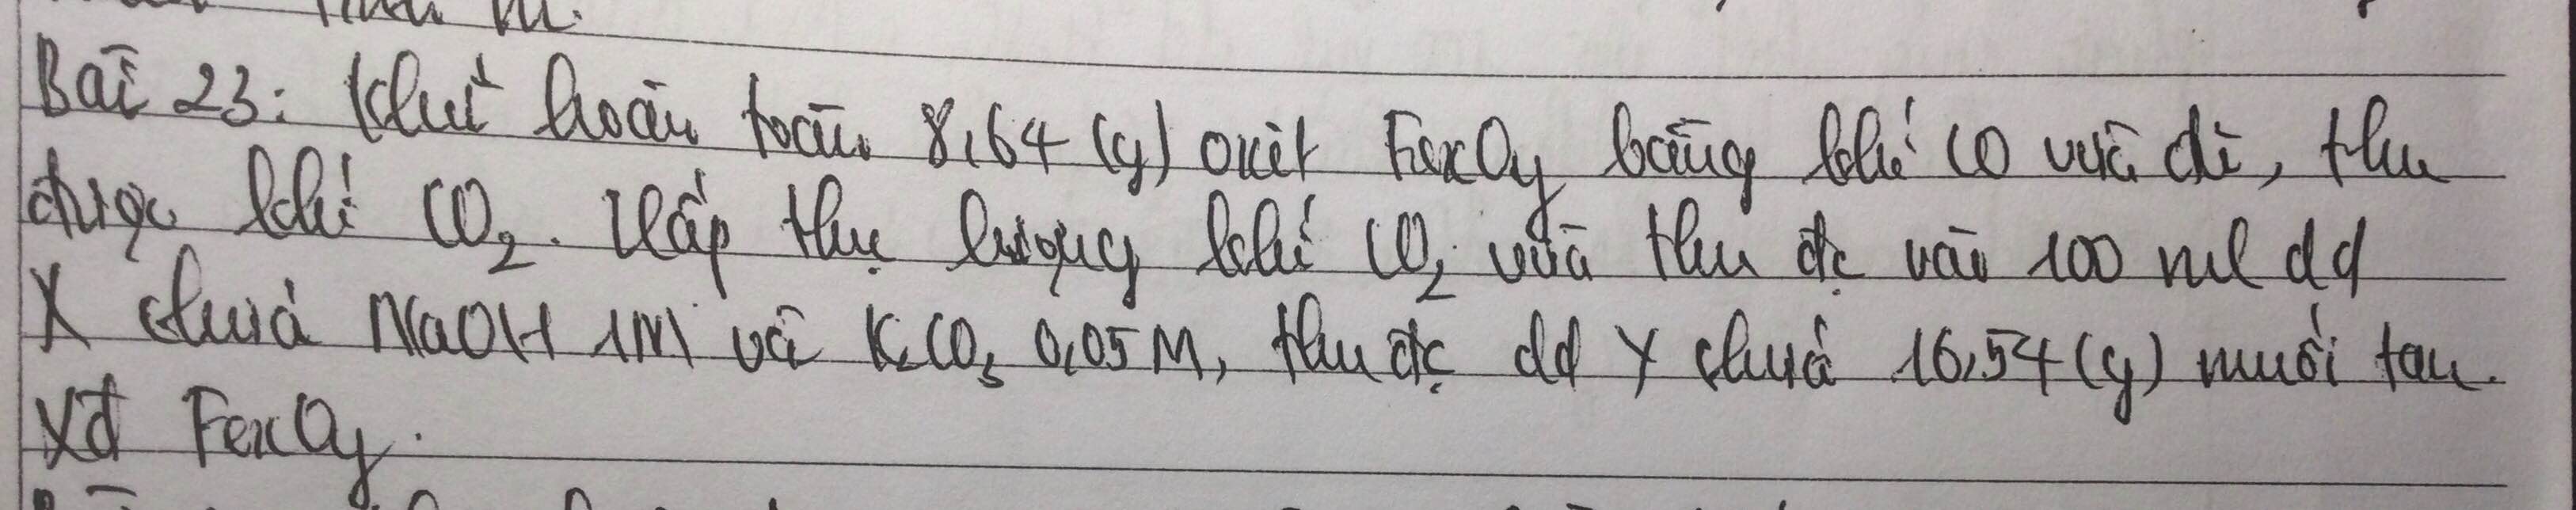 Bài 23: Khử hoàn toàn 8,64 (g) oxit FexOy bằng khí CO vừa đủ, thu
được khí CO2. Hấp thụ lượng khí CO2 vừa thu đc vào 100 ml dd
X chứa NaOH 1M và K2CO3 0,05M, thu đc dd Y chứa 16,54 (g) muối tan.
Xđ FexOy.